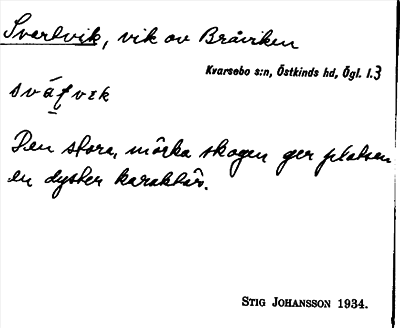 Svartvik, vik av Bråviken
Kvarsebo s:n, Östkinds hd, Ögl. l.3
Den stora, mörka skogen ger platsen
en dyster karaktär.
STIG JOHANSSON 1934.